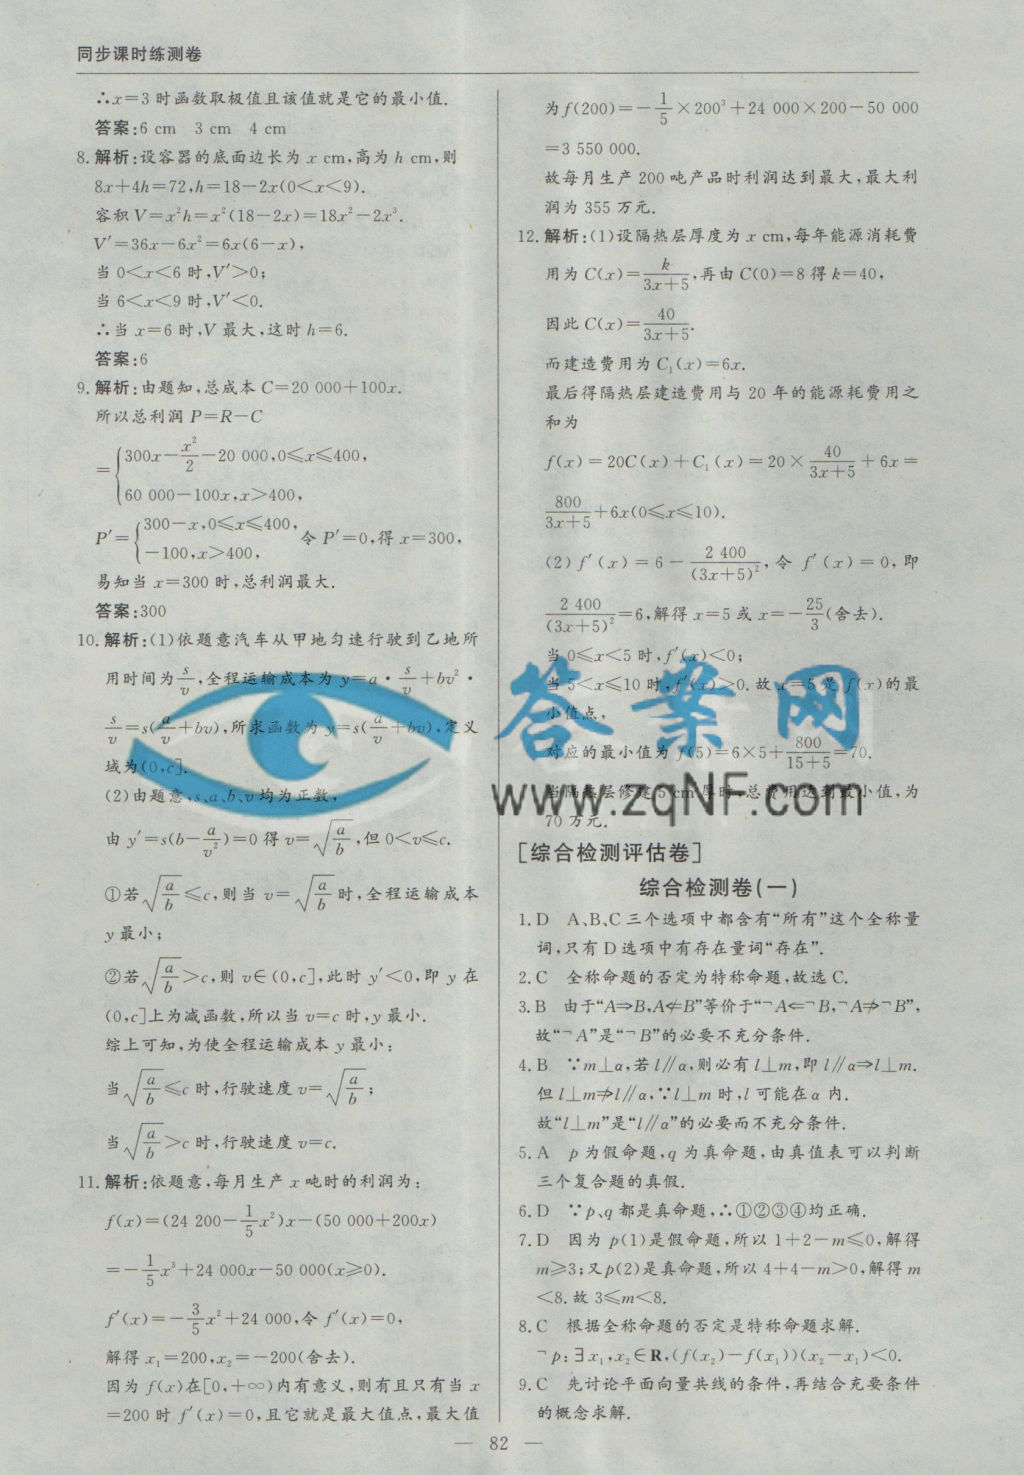 同步课时练测卷
∴x=3 时函数取极值且该值就是它的最小值.
答案:6 cm 3 cm 4 cm
8. 解析:设容器的底面边长为 x cm,高为 h cm,则
8x+4h=72,h=18-2x(0<x<9).
容积 V=x²h=x²(18-2x)=18x²-2x³.
V′=36x-6x²=6x(6-x),
当 0<x<6 时,V′>0;
当 6<x<9 时,V′<0.
∴当 x=6 时,V 最大,这时 h=6.
答案:6
9. 解析:由题知,总成本 C=20 000+100x.
所以总利润 P=R-C
={300x-x²/2-20 000,0≤x≤400,
60 000-100x,x>400,
P′={300-x,0≤x≤400,
-100,x>400, 令 P′=0,得 x=300,
易知当 x=300 时,总利润最大.
答案:300
10. 解析:(1)依题意汽车从甲地匀速行驶到乙地所
用时间为 s/v,全程运输成本为 y=a·s/v+bv²·
s/v=s(a/v+bv),所求函数为 y=s(a/v+bv),定义
域为(0,c].
(2)由题意,s、a、b、v 均为正数,
由 y′=s(b-a/v²)=0 得 v=√(a/b),但 0<v≤c.
①若√(a/b)≤c,则当 v=√(a/b)时,全程运输成本
y 最小;
②若√(a/b)>c,则 v∈(0,c],此时 y′<0,即 y 在
(0,c]上为减函数,所以当 v=c 时,y 最小.
综上可知,为使全程运输成本 y 最小:
当√(a/b)≤c 时,行驶速度 v=√(a/b);
当√(a/b)>c 时,行驶速度 v=c.
11. 解析:依题意,每月生产 x 吨时的利润为:
f(x)=(24 200-1/5x²)x-(50 000+200x)
=-1/5x³+24 000x-50 000(x≥0).
f′(x)=-3/5x²+24 000,令 f′(x)=0,
解得 x₁=200,x₂=-200(舍去).
因为 f(x)在[0,+∞)内有意义,则有且只有当 x
=200 时 f′(x)=0,且它就是最大值点,最大值
为 f(200)=-1/5×200³+24 000×200-50 000
=3 550 000.
故每月生产 200 吨产品时利润达到最大,最大利
润为 355 万元.
12. 解析:(1)设隔热层厚度为 x cm,每年能源消耗费
用为 C(x)=k/(3x+5),再由 C(0)=8 得 k=40,
因此 C(x)=40/(3x+5).
而建造费用为 C₁(x)=6x.
最后得隔热层建造费用与 20 年的能源耗费用之
和为
f(x)=20C(x)+C₁(x)=20×40/(3x+5)+6x=
800/(3x+5)+6x(0≤x≤10).
(2)f′(x)=6-2 400/(3x+5)²,令 f′(x)=0,即
2 400/(3x+5)²=6,解得 x=5 或 x=-25/3(舍去).
当 0≤x<5 时,f′(x)<0;
当 5<x≤10 时,f′(x)>0.故 x=5 是 f(x)的最
小值点,
对应的最小值为 f(5)=6×5+800/(15+5)=70.
当隔热层修建 5 cm 厚时,总费用达到最小值,为
70 万元.
答案网
www.zqNF.com
[综合检测评估卷]
综合检测卷(一)
1. D A、B、C 三个选项中都含有“所有”这个全称量
词,只有 D 选项中有存在量词“存在”.
2. C 全称命题的否定为特称命题,故选 C.
3. B 由于“A⇒B,A⇍B”等价于“¬A⇐¬B,¬A⇏¬B”,
故“¬A”是“¬B”的必要不充分条件.
4. B ∵m⊥α,若 l∥α,则必有 l⊥m,即 l∥α⇒l⊥m.
但 l⊥m⇏l∥α,∵l⊥m 时,l 可能在 α 内.
故“l⊥m”是“l∥α”的必要而不充分条件.
5. A p 为假命题,q 为真命题,由真值表可以判断
三个复合题的真假.
6. D ∵p、q 都是真命题,∴①②③④均正确.
7. D 因为 p(1)是假命题,所以 1+2-m≤0,解得
m≥3;又 p(2)是真命题,所以 4+4-m>0,解得 m
<8.故 3≤m<8.
8. C 根据全称命题的否定是特称命题求解.
¬p:∃x₁,x₂∈R,(f(x₂)-f(x₁))(x₂-x₁)<0.
9. C 先讨论平面向量共线的条件,再结合充要条件
的概念求解.
— 82 —